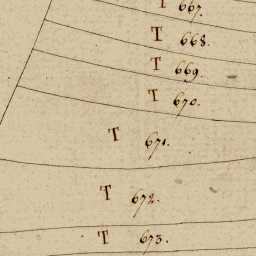 T 667.
T 668.
T 669.
T 670.
T 671.
T 672.
T 673.